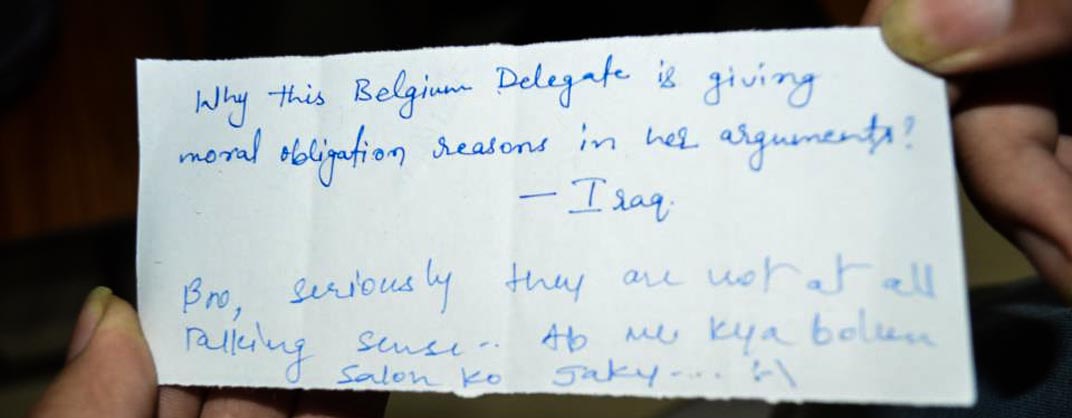 Why this Belgium Delegate is giving
moral obligation reasons in her arguments?
— Iraq.
Bro, seriously they are not at all
talking sense.. Ab me kya bolun
salon ko jaky.... :-\